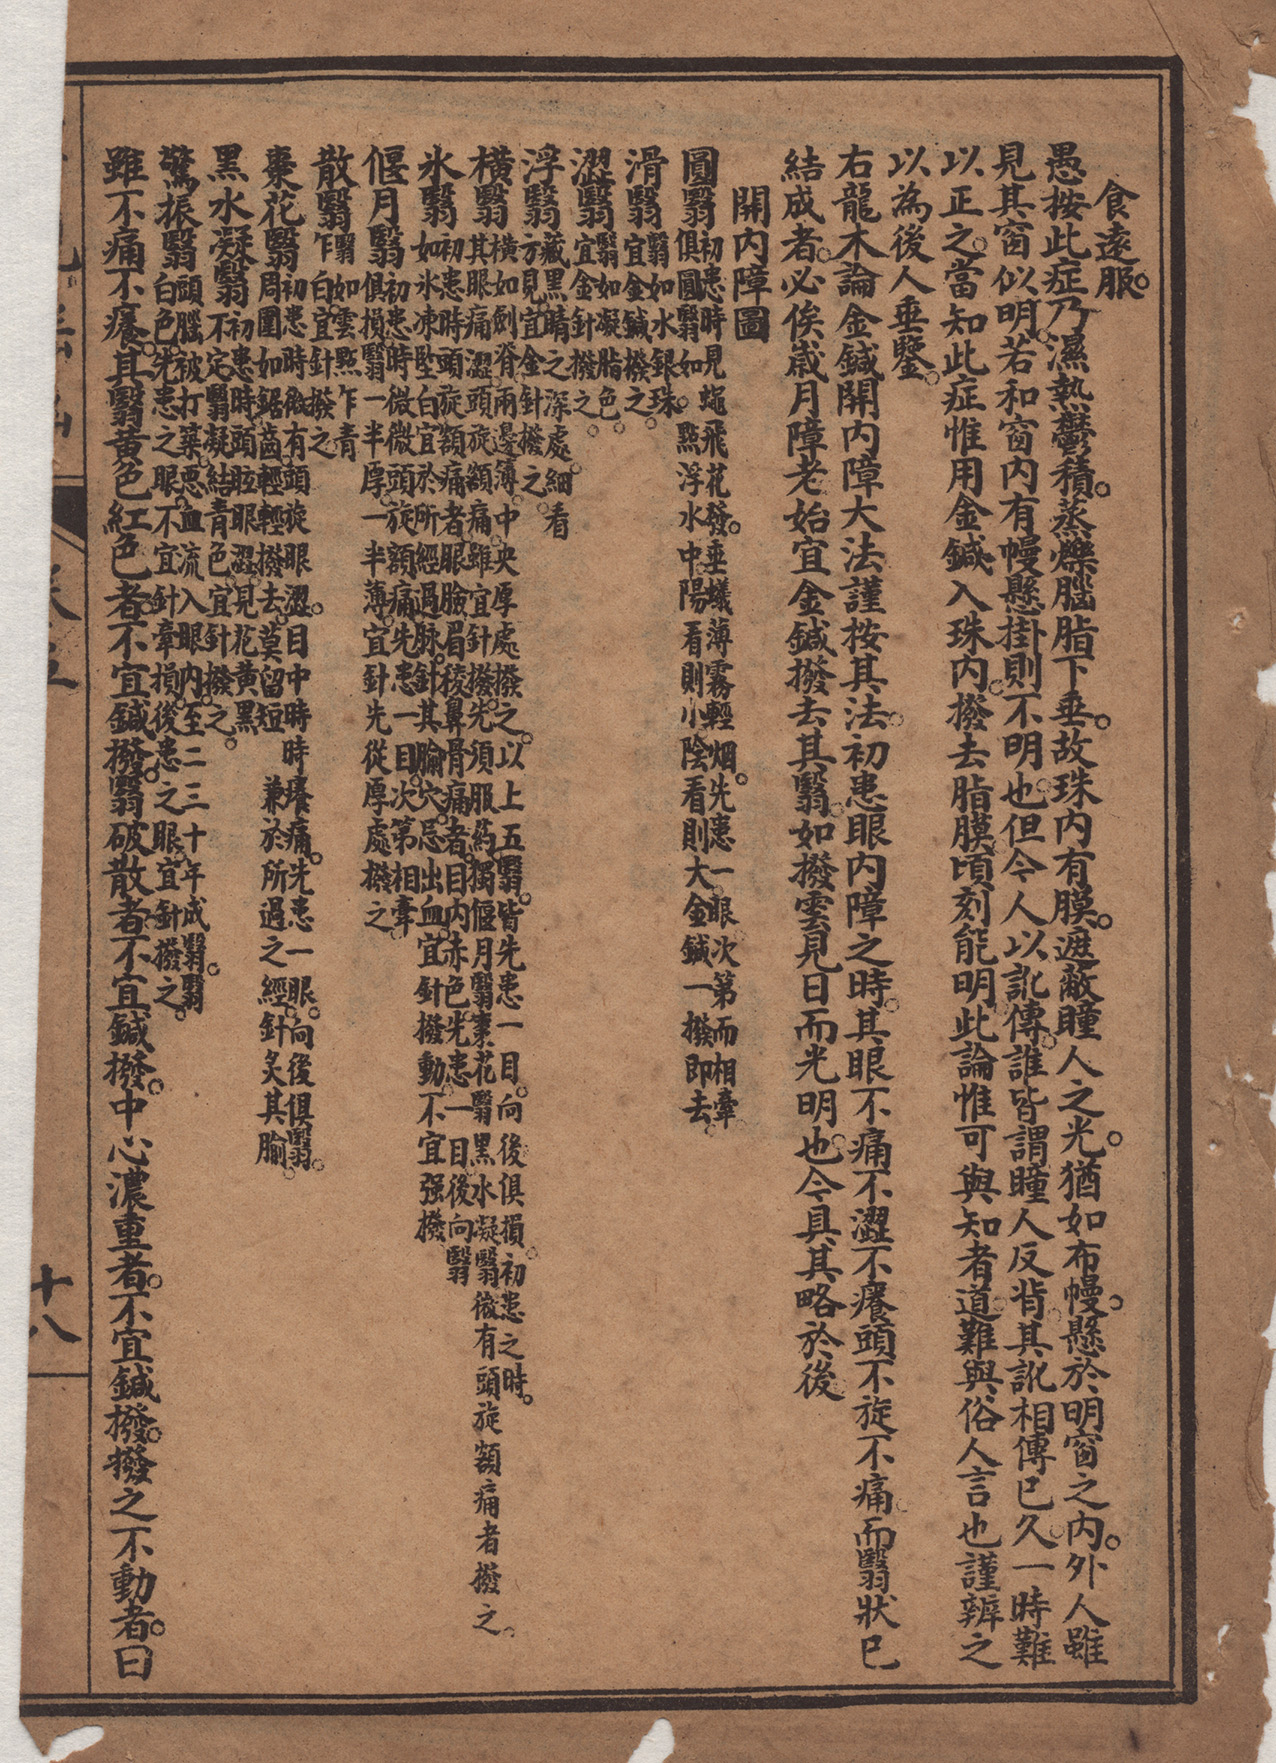 食遠服。
愚按此症乃濕熱鬱積。蒸爍腦脂下垂。故珠內有膜。遮蔽瞳人之光。猶如布幔。懸於明窗之內。外人雖
見其窗似明。若和窗內有幔懸掛則不明也。但今人以訛傳。誰皆謂瞳人反背。其訛相傳已久。一時難
以正之。當知此症惟用金鍼入珠內。撥去脂膜。頃刻能明。此論惟可與知者道。難與俗人言也。謹辨之
以為後人垂鑒。
右龍木論金鍼開內障大法。謹按其法。初患眼內障之時。其眼不痛不澀不癢。頭不旋不痛。而翳狀已
結成者。必俟歲月障老。始宜金鍼撥去其翳。如撥雲見日而光明也。今具其略於後
開內障圖
圓翳 初患時見蠅飛花發。垂蟻薄霧輕烟。先患一眼。次第而相牽
俱圓翳。如一點浮水中。陽看則小。陰看則大。金鍼一撥即去。
滑翳 翳如水銀珠。
宜金鍼撥之。
澀翳 翳如凝脂色。
宜金針撥之。
浮翳 藏黑睛之深處。細看
方見。宜金針撥之。
橫翳 橫如劍脊。兩邊薄。中央厚。處撥之。以上五翳。皆先患一目。向後俱損。初患之時。
其眼痛澀。頭旋額痛。雖宜針撥。先須服葯。獨偃月翳棗花翳黑水凝翳。微有頭旋額痛者撥之。
氷翳 初患時頭旋。額痛者。眼臉眉稜鼻骨痛者。目內赤色。先患一目。後向翳
如氷凍堅白。宜於所經過脉。針其腧穴。忌出血。宜針撥動。不宜强撥
偃月翳 初患時微微頭旋額痛。先患一目。次第相牽
俱損。翳一半厚。一半薄。宜針先從厚處撥之。
散翳 翳如雲點。乍青
乍白。宜針撥之
棗花翳 初患時微有頭旋眼澀。目中時時癢痛。先患一眼。向後俱翳。
周圍如鋸齒。輕輕撥去。莫留短 兼於所過之經。針灸其腧。
黑水凝翳 初患時頭眩眼澀。見花黃黑
不定。翳凝結青色。宜針撥之。
驚振翳 頭腦被打築。惡血流入眼內。至二三十年成翳。翳
白色。先患之眼。不宜針。牽損後患之眼。宜針撥之。
雖不痛不癢。其翳黃色紅色者。不宜鍼撥。翳破散者。不宜鍼撥。中心濃重者。不宜鍼撥。撥之不動者。曰
卷五
十八